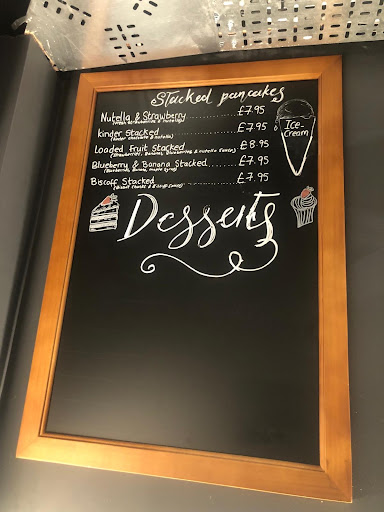 Stacked pancakes
Nutella & Strawberry ........ £7.95
(Fresh strawberries & nutella)
Kinder Stacked ........ £7.95
(Kinder chocolate & nutella)
Loaded Fruit Stacked ........ £8.95
(Strawberries, Bananas, Blueberries & nutella Sauce)
Blueberry & Banana Stacked ........ £7.95
(Blueberries, Banana, maple syrup)
Biscoff Stacked ........ £7.95
(Biscoff & Biscoff Sauce)
Ice-
Cream
Desserts